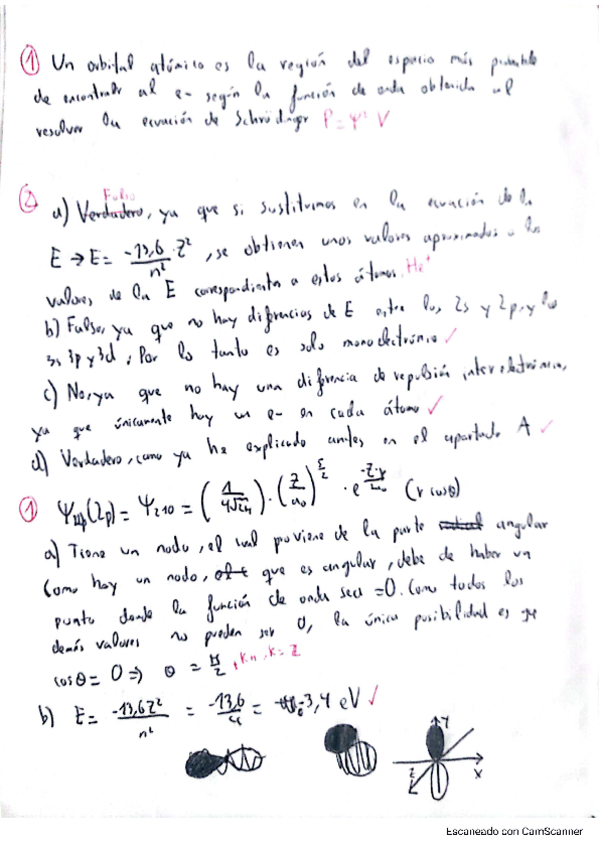 ① Un orbital atómico es la región del espacio más probable
de encontrar al e- según la función de onda obtenida al
resolver la ecuación de Schrödinger P=Ψ² V
② Falso
a) Verdadero, ya que si sustituimos en la ecuación de la
E → E= -13,6/n² · Z², se obtienen unos valores aproximados a los
valores de la E correspondiente a estos átomos. He⁺
b) Falso, ya que no hay diferencias de E entre los 2s y 2p, y los
3s 3p y 3d; Por lo tanto es solo monoelectrónico ✓
c) No, ya que no hay una diferencia de repulsión interelectrónica,
ya que únicamente hay un e- en cada átomo ✓
d) Verdadero, como ya he explicado antes en el apartado A ✓
① (2p) = Ψ210 = (1/4√2π) · (Z/a₀)^5/2 · e^-Z·r/2a₀ (r cosθ)
a) Tiene un nodo, el cual proviene de la parte radial angular
Como hay un nodo, que es angular, debe de haber un
punto donde la función de onda sea =0. Como todos los
demás valores no pueden ser 0, la única posibilidad es que
cosθ = 0 ⇒ θ = π/2 + kπ, k = Z
b) E= -13,6Z²/n² = -13,6/4 = -3,4 eV ✓
Y
Z X
Escaneado con CamScanner